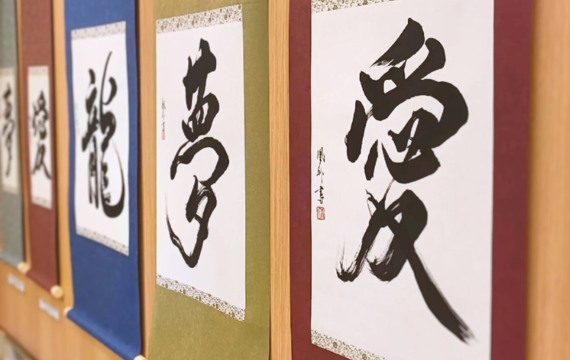 夢
愛
龍
夢
愛